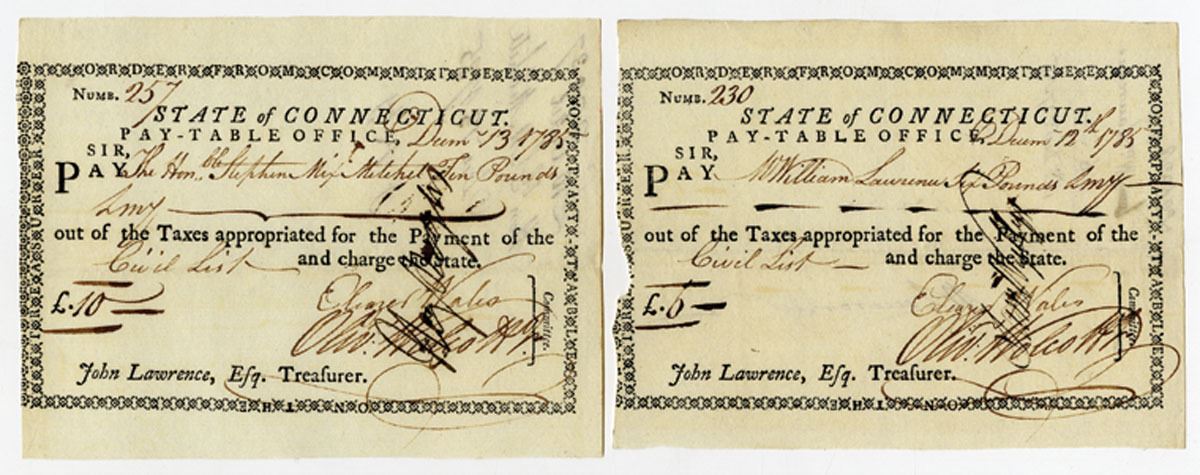 ORDER FROM COMMITTEE
OF PAY-TABLE
ON THE
TREASURER
NUMB. 257
STATE of CONNECTICUT.
PAY-TABLE OFFICE, Decm 13 1785
SIR,
PAY The Honble Stephen Mix Mitchel Ten Pounds
Lmy
out of the Taxes appropriated for the Payment of the
Civil List and charge the State.
£.10
Eleazer Wales
Olivr Wolcott Jr
Committee.
John Lawrence, Esq. Treaſurer.
ORDER FROM COMMITTEE
OF PAY-TABLE
ON THE
TREASURER
NUMB. 230
STATE of CONNECTICUT.
PAY-TABLE OFFICE, Decm 12th 1785
SIR,
PAY Wm William Lawrence Six Pounds Lmy
out of the Taxes appropriated for the Payment of the
Civil List and charge the State.
£.6
Eleazer Wales
Olivr Wolcott Jr
Committee.
John Lawrence, Esq. Treaſurer.